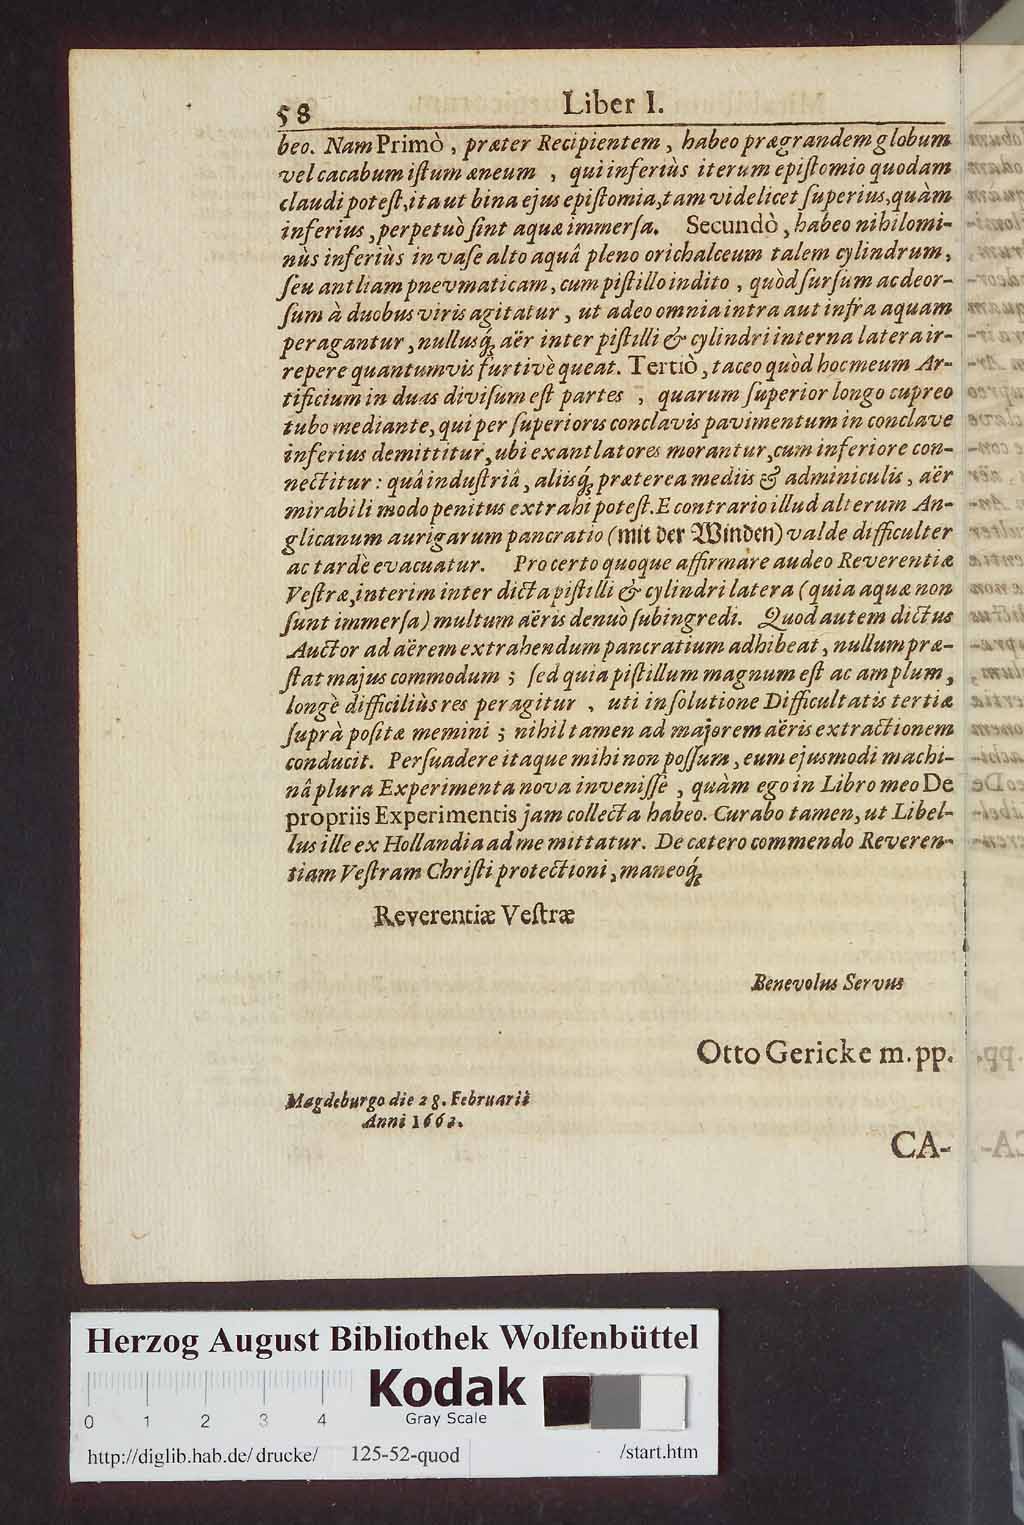 58 Liber I.
beo. Nam Primò, præter Recipientem, habeo prægrandem globum
vel cacabum iſtum æneum, qui inferiùs iterum epiſtomio quodam
claudi poteſt, ita ut bina ejus epiſtomia, tam videlicet ſuperius, quàm
inferius, perpetuò ſint aquæ immerſa. Secundò, habeo nihilomi-
nùs inferiùs in vaſe alto aquâ pleno orichalceum talem cylindrum,
ſeu antliam pnevmaticam, cum piſtillo indito, quòd ſurſum ac deor-
ſum à duobus viris agitatur, ut adeo omnia intra aut infra aquam
peragantur, nullusq́; aër inter piſtilli & cylindri interna latera ir-
repere quantumvis furtivè queat. Tertiò, taceo quòd hoc meum Ar-
tificium in duas diviſum eſt partes, quarum ſuperior longo cupreo
tubo mediante, qui per ſuperioris conclavis pavimentum in conclave
inferius demittitur, ubi exantlatores morantur, cum inferiore con-
nectitur: quâ induſtriâ, aliisq́; præterea mediis & adminiculis, aër
mirabili modo penitus extrahi poteſt. E contrario illud alterum An-
glicanum aurigarum pancratio (mit der Winden) valde difficulter
ac tardè evacuatur. Pro certo quoque affirmare audeo Reverentiæ
Veſtræ, interim inter dicta piſtilli & cylindri latera (quia aquæ non
ſunt immerſa) multum aëris denuò ſubingredi. Quod autem dictus
Auctor ad aërem extrahendum pancratium adhibeat, nullum præ-
ſtat majus commodum; ſed quia piſtillum magnum eſt ac amplum,
longè difficiliùs res peragitur, uti in ſolutione Difficultatis tertiæ
ſuprà poſitæ memini; nihil tamen ad majorem aëris extractionem
conducit. Perſuadere itaque mihi non poſſum, eum ejusmodi machi-
nâ plura Experimenta nova inveniſſe, quàm ego in Libro meo De
propriis Experimentis jam collecta habeo. Curabo tamen, ut Libel-
lus ille ex Hollandia ad me mittatur. De cætero commendo Reveren-
tiam Veſtram Chriſti protectioni, maneoq́;
Reverentiæ Veſtræ
Benevolus Servus
Otto Gericke m.pp.
Magdeburgo die 28. Februarii
Anni 1662.
CA-
Herzog August Bibliothek Wolfenbüttel
Kodak
Gray Scale
0 1 2 3 4
http://diglib.hab.de/drucke/ 125-52-quod /start.htm